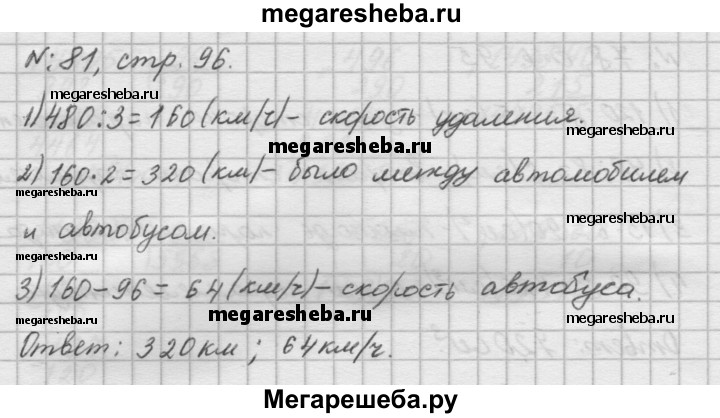 megaresheba.ru
№81, стр. 96.
megaresheba.ru
megaresheba.ru
1) 480:3=160 (км/ч)- скорость удаления.
megaresheba.ru
2) 160·2=320 (км)- было между автомобилем
megaresheba.ru
megaresheba.ru
и автобусом.
3) 160-96= 64 (км/ч)- скорость автобуса.
megaresheba.ru
megaresheba.ru
megaresheba.ru
Ответ: 320км; 64км/ч.
Мегарешеба.ру